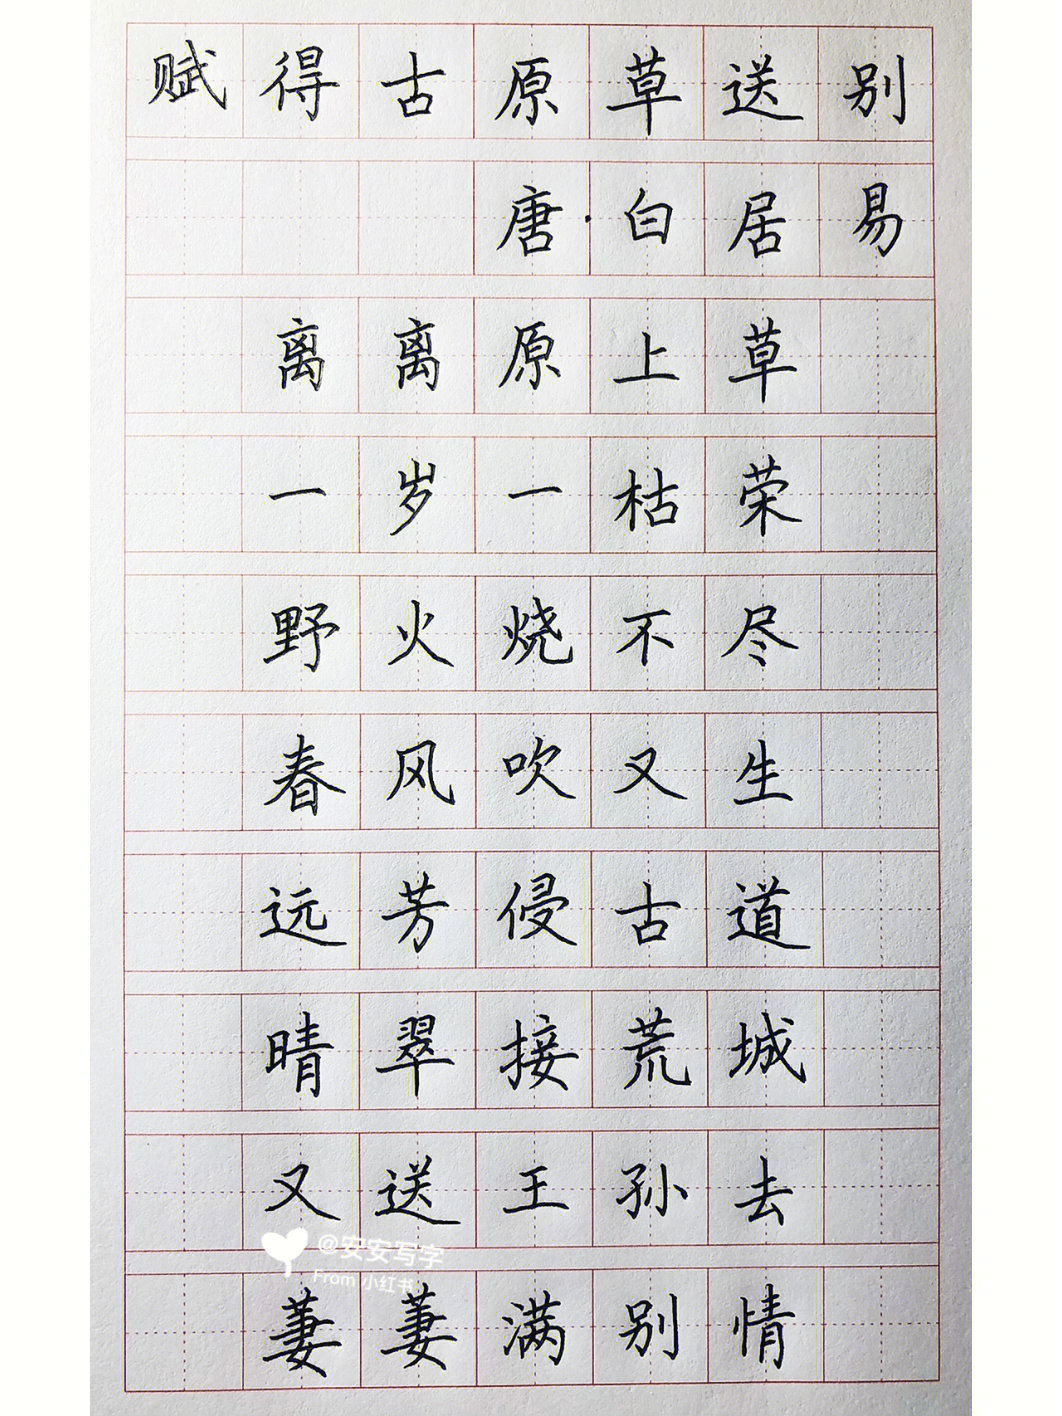 赋得古原草送别
唐·白居易
离离原上草
一岁一枯荣
野火烧不尽
春风吹又生
远芳侵古道
晴翠接荒城
又送王孙去
@安安写字
From 小红书
萋萋满别情